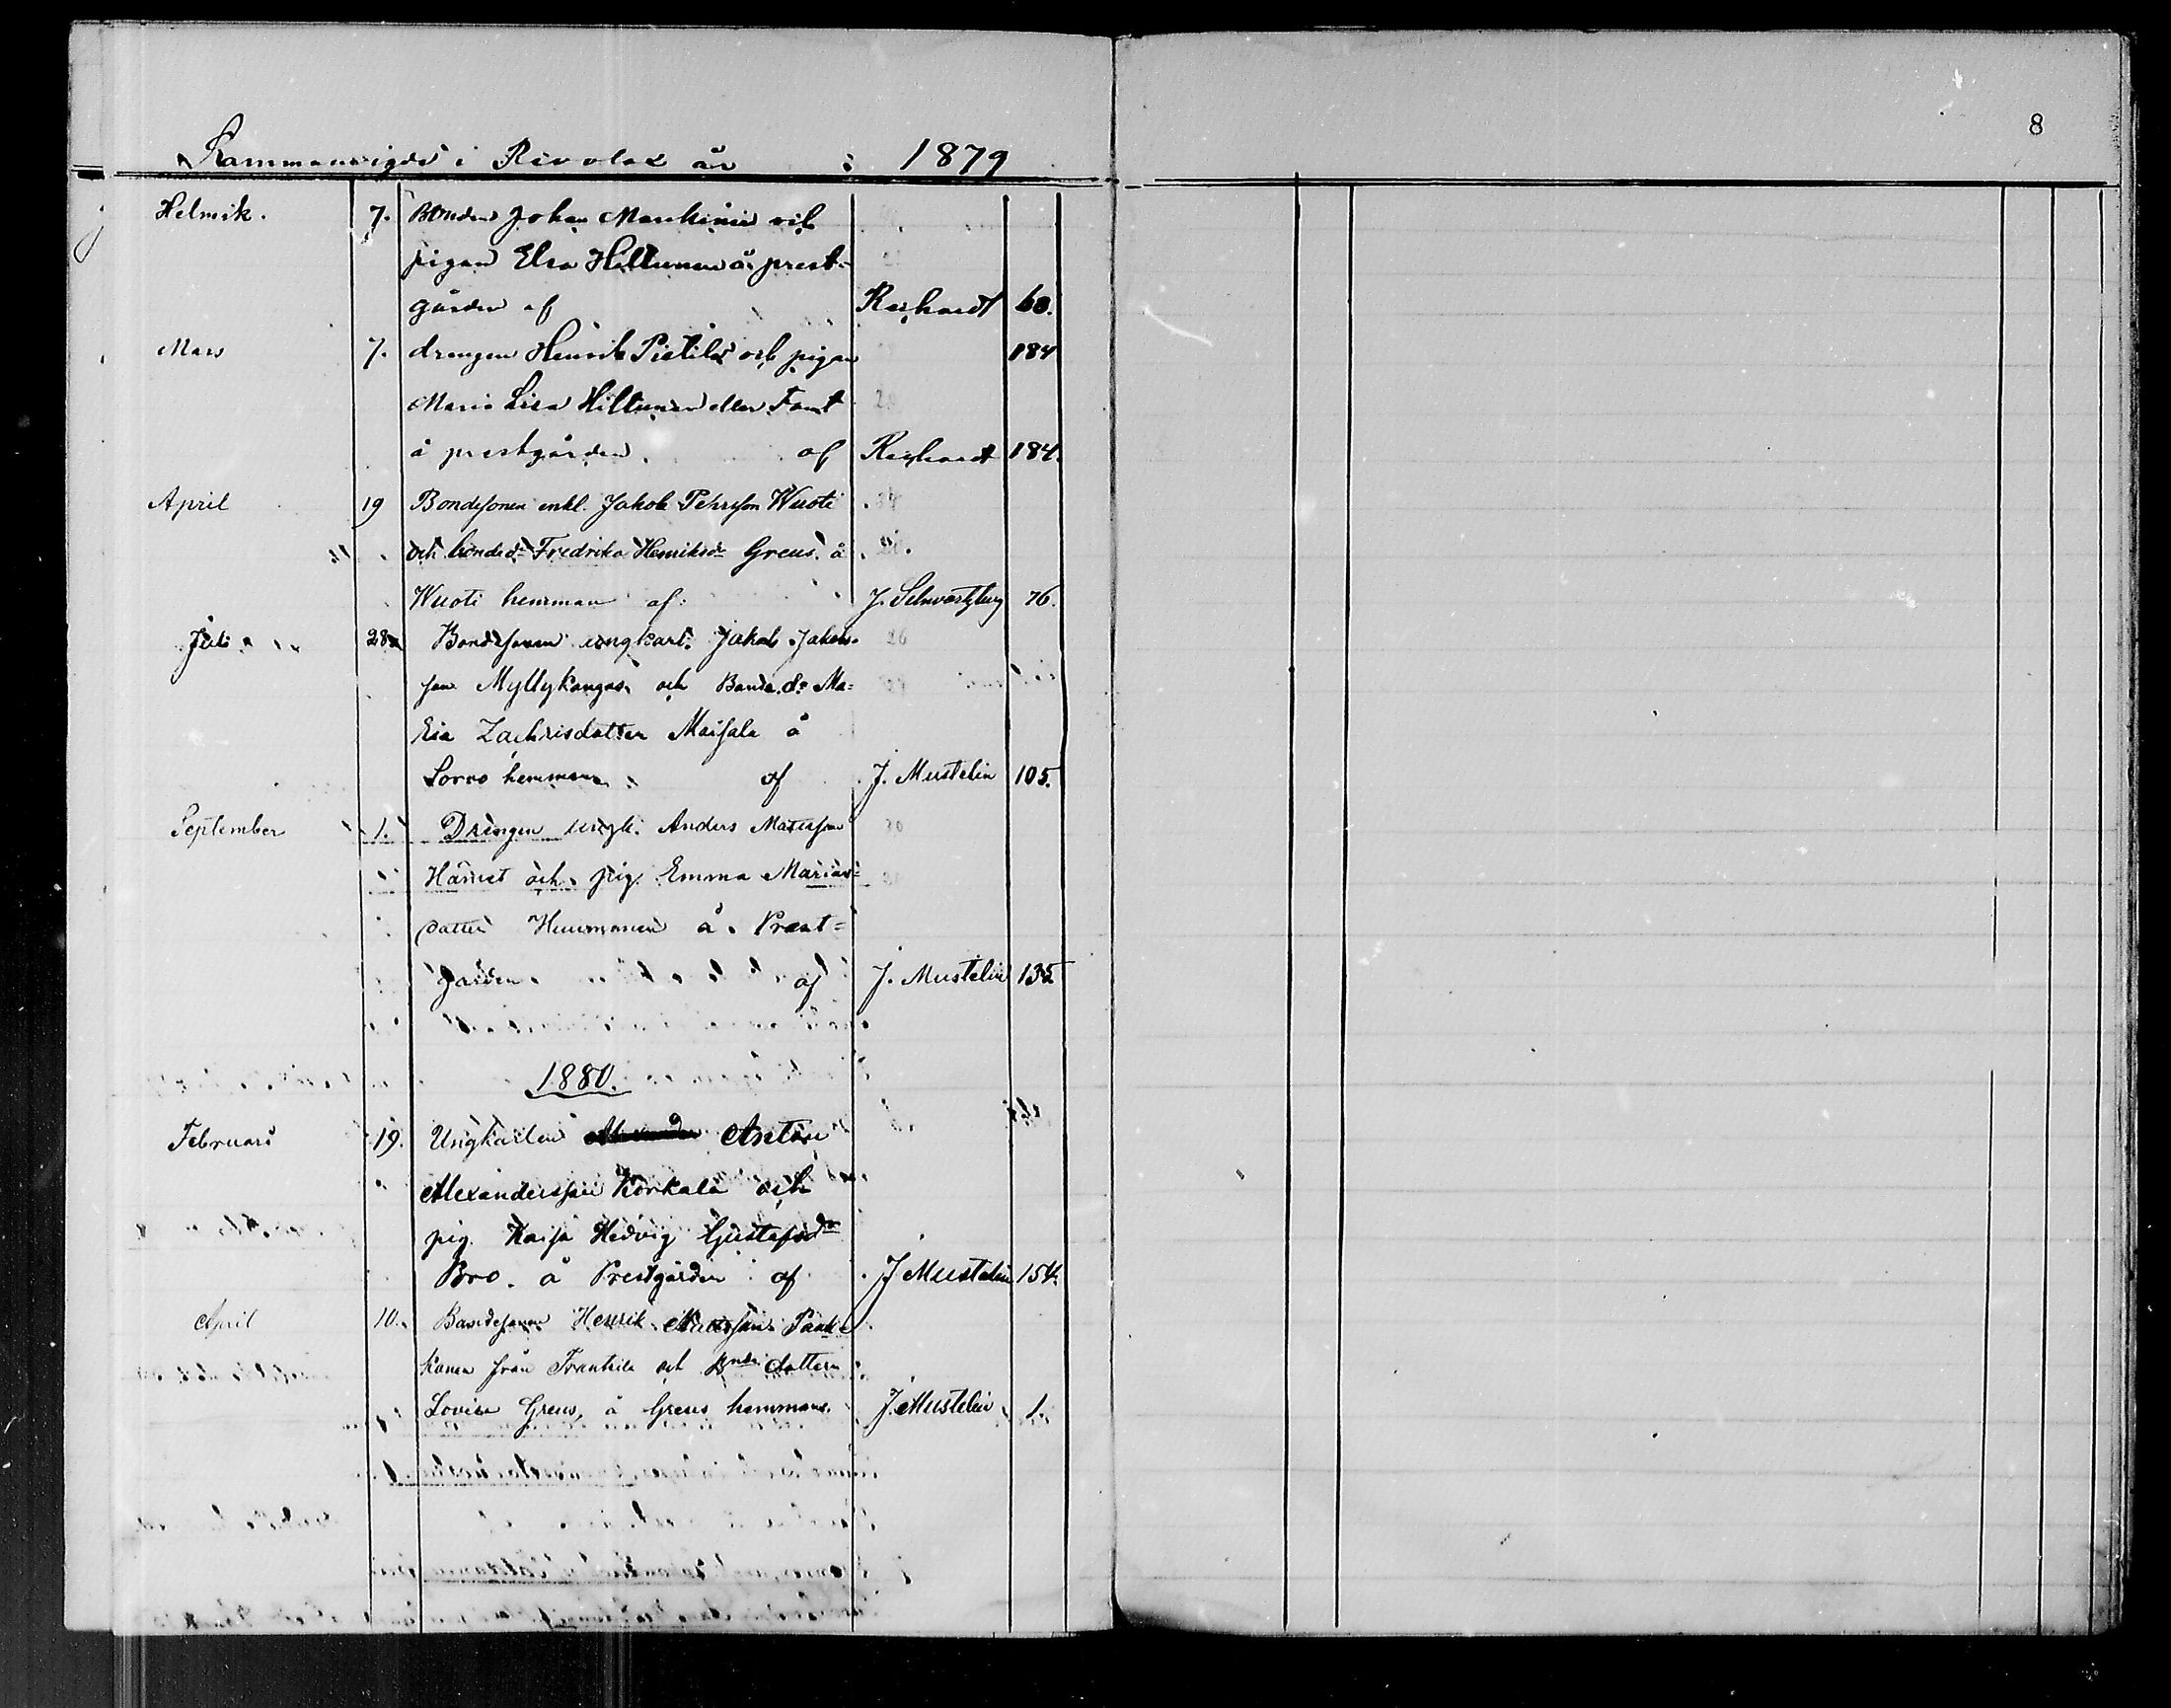 8
Sammanvigde i Revolax år : 1879
Helmik. 7. Bonden Johan Mankinen och
pigan Elsa Hiltunen å prest-
gården af Reihardt 60.
Mars 7. drengen Henrik Pietilä och pigan 184
Maria Lisa Hiltunen eller Fant
å prestgården. af Reihardt 184.
April 19 Bondesonen enkl. Jakob Pehrsson Wuoti
och bonded:r Fredrika Henriksd:r Greus å
Wuoti hemman af: J. Schwartzberg 76.
Juli 28 Bondesonen ungkarl. Jakob Jakobs-
son Myllykangas och Bonde.d:r Ma=
ria Zachrisdotter Maisala å
Sorvo hemman af J. Mustelin 105.
September 1. Drengen ungk. Anders Matsson
och pig. Emma Marias-
dotter å Prest=
gården af J. Mustelin 135
1880.
Februari 19. Ungkarlen Anton
Alexandersson Korkala och
pig. Kaisa Hedvig Gustafsd:r
Bro. å Prestgården af J Mustelin 154.
April 10. Bondesonen Henrik Mattsson Paak-
konen från Frantsila och dottern
Lovisa Greus, å Greus hemman. J. Mustelin 1.